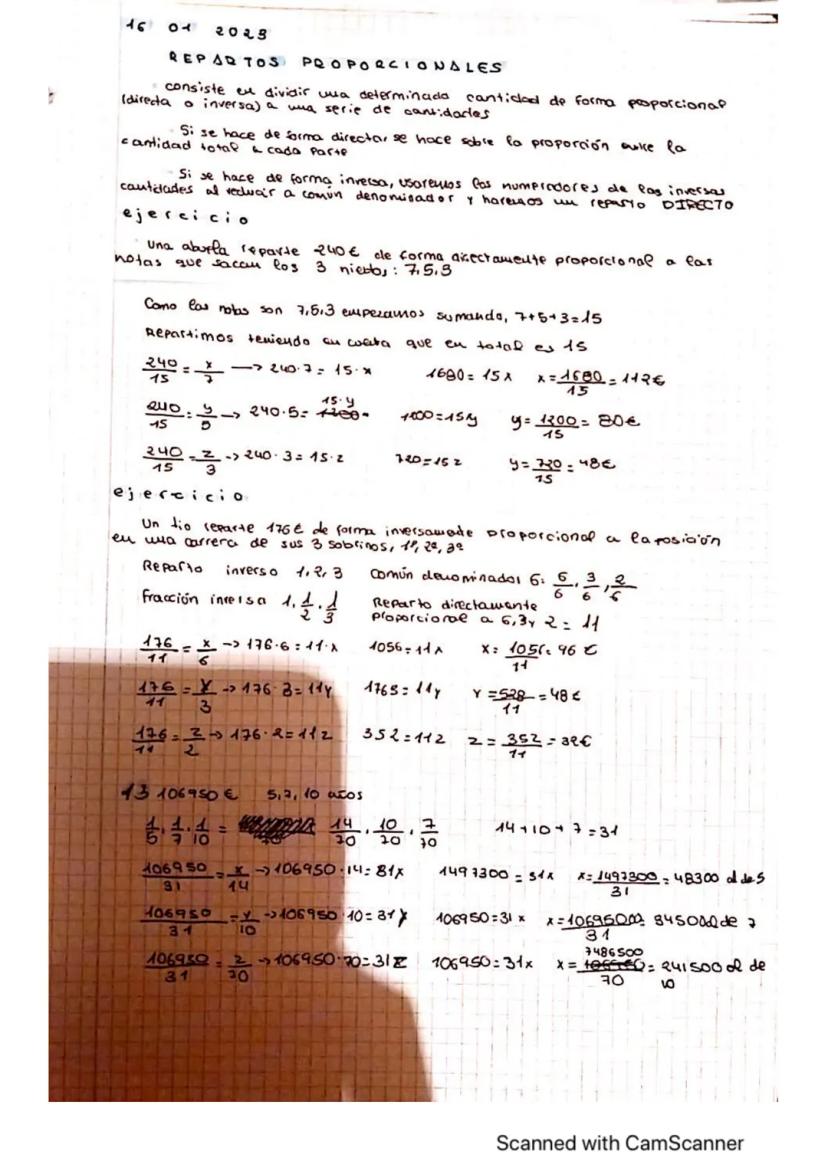 16 01 2023
REPARTOS PROPORCIONALES
consiste en dividir una determinada cantidad de forma proporcional
(directa o inversa) a una serie de cantidades
Si se hace de forma directa, se hace sobre la proporción entre la
cantidad total a cada parte
Si se hace de forma inversa, usaremos los numeradores de las inversas
cantidades al reducir a común denominador y haremos un reparto DIRECTO
ejercicio
Una abuela reparte 240€ de forma directamente proporcional a las
notas que sacan los 3 nietos: 7,5,3
Como las notas son 7,5,3 empezamos sumando, 7+5+3=15
Repartimos teniendo en cuenta que en total es 15
240/15 = x/7 → 240·7 = 15·x 1680 = 15x x = 1680/15 = 112€
240/15 = y/5 → 240·5 = 15·y 1200 = 15y y = 1200/15 = 80€
240/15 = z/3 → 240·3 = 15·z 720 = 15z y = 720/15 = 48€
ejercicio
Un tio reparte 176€ de forma inversamente proporcional a la posición
en una carrera de sus 3 sobrinos, 1º, 2º, 3º
Reparto inverso 1, 2, 3 Común denominador 6: 6/6, 3/6, 2/6
Fracción inversa 1, 1/2, 1/3 Reparto directamente
proporcional a 6, 3 y 2 = 11
176/11 = x/6 → 176·6 = 11·x 1056 = 11x x = 1056/11 = 96€
176/11 = y/3 → 176·3 = 11y 176·3 = 11y y = 528/11 = 48€
176/11 = z/2 → 176·2 = 11z 352 = 11z z = 352/11 = 32€
13 106950€ 5, 7, 10 años
1/5, 1/7, 1/10 = 14/70, 10/70, 7/70 14+10+7=31
106950/31 = x/14 → 106950·14 = 31x 1497300 = 31x x = 1497300/31 = 48300 al de 5
106950/31 = y/10 → 106950·10 = 31y 106950 = 31x x = 1069500/31 = 34500 al de 7
106950/31 = z/70 → 106950·70 = 31z 106950 = 31x x = 7486500/70 = 241500 al de
10
Scanned with CamScanner